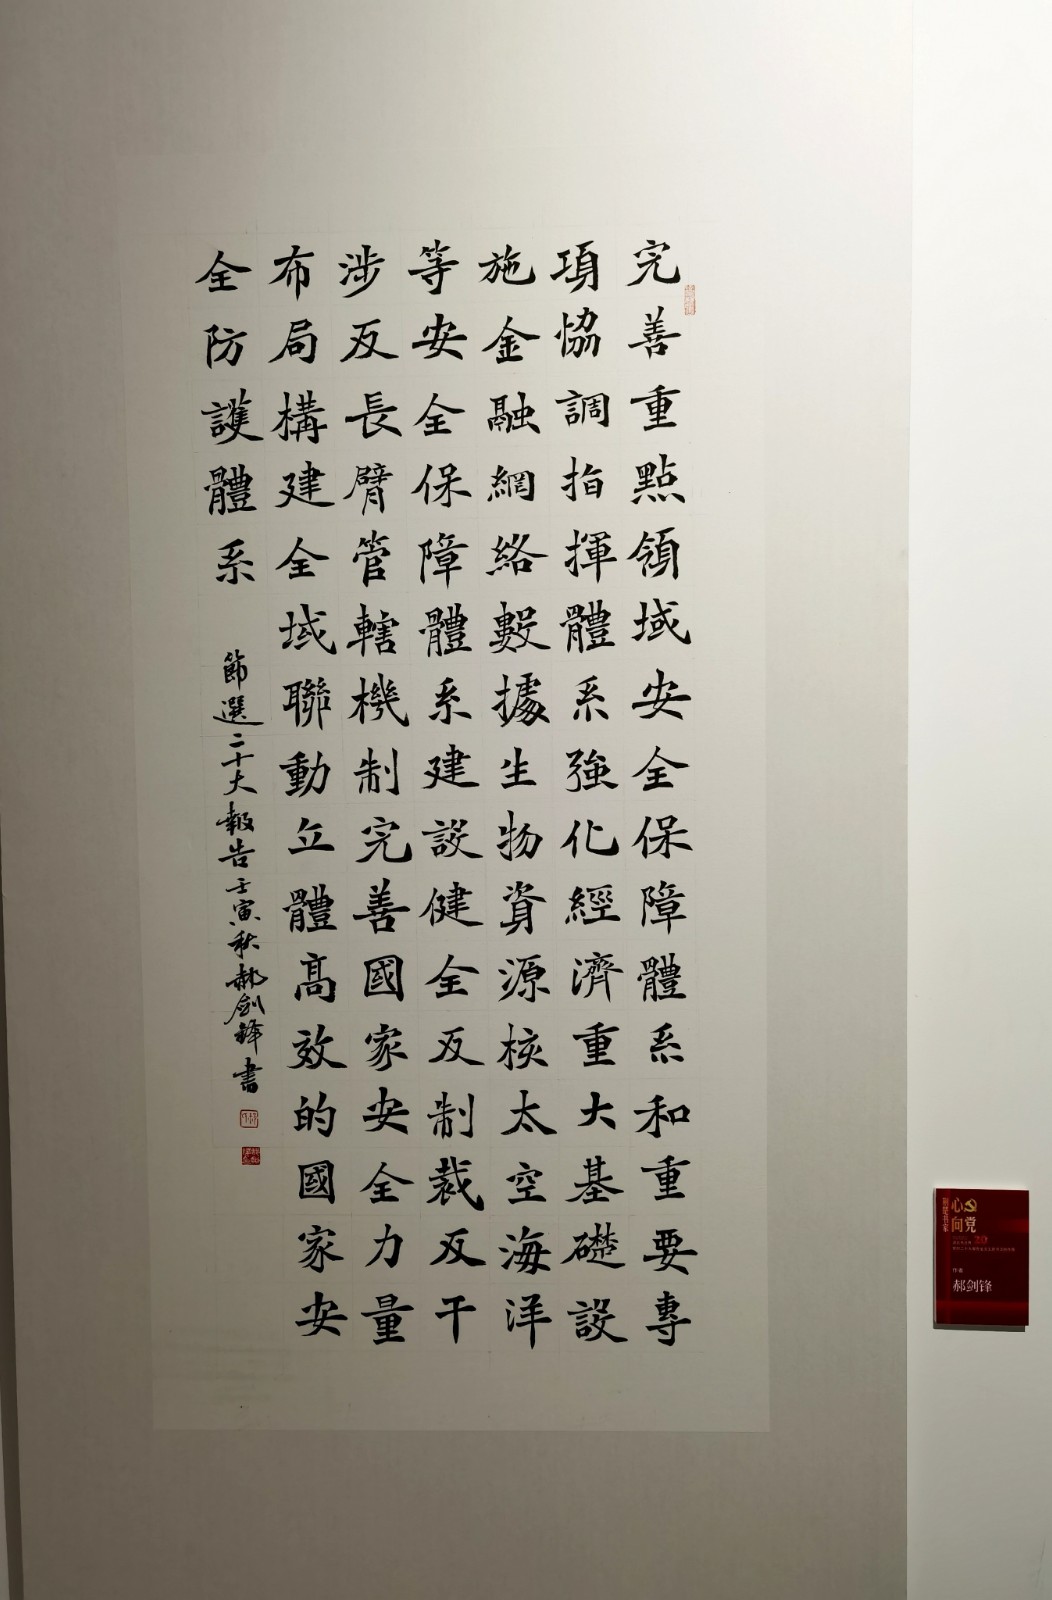 完善重點領域安全保障體系和重要專
項恊調指揮體系強化經濟重大基礎設
施金融網絡數據生物資源核太空海洋
等安全保障體系建設健全反制裁反干
涉反長臂管轄機制完善國家安全力量
布局構建全域聯動立體高效的國家安
全防護體系
節選二十大報告壬寅秋郝剑锋書
荆楚书家
心向党
20
作者
郝剑锋